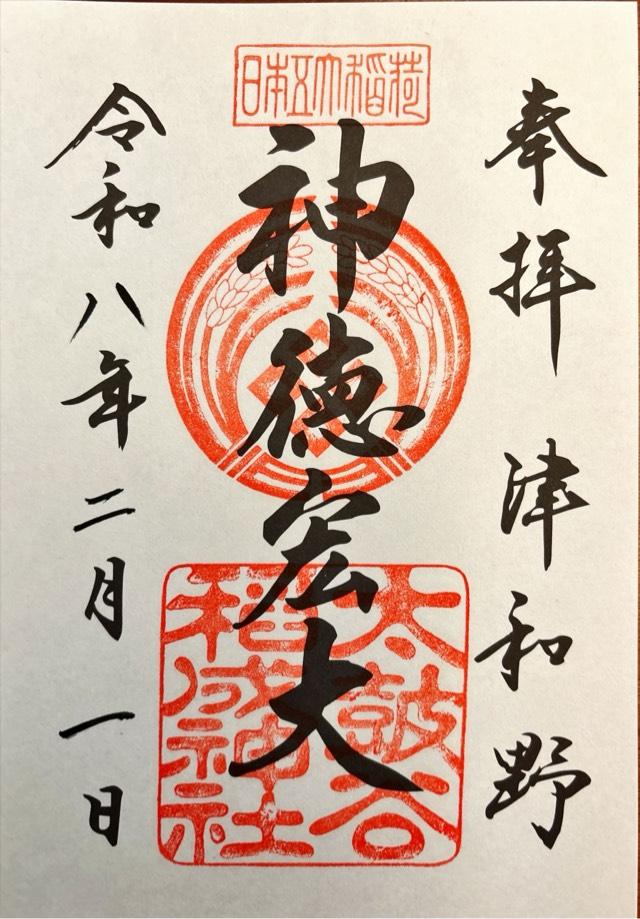 奉拝 津和野
日本五大稲荷
神徳宏大
太皷谷
稲成神社
令和八年二月一日